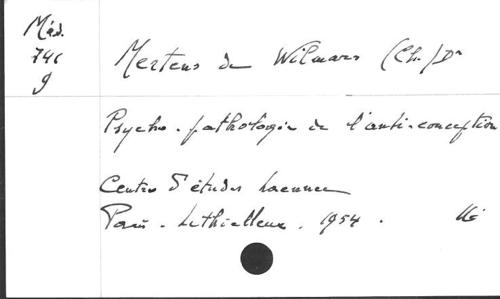 Méd.
741
g
Mertens de Wilmars (Ch.) Dr
Psycho-pathologie de l'anti-conception
Centre d'études Laennec
Paris. Lethielleux. 1954.